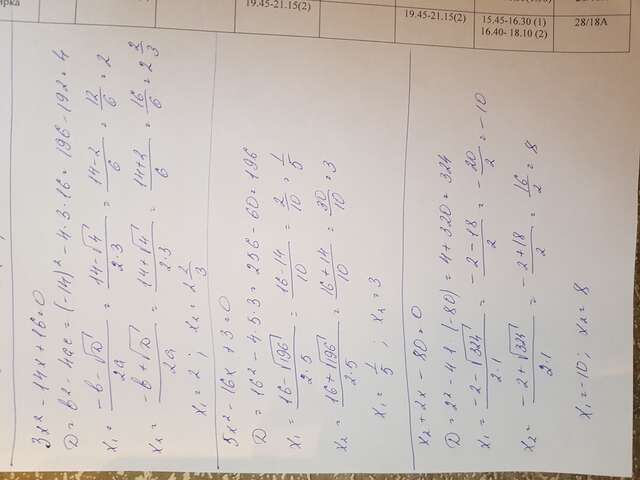 3x² - 14x + 16 = 0
D = b² - 4ac = (-14)² - 4·3·16 = 196 - 192 = 4
x₁ = (-b - √D)/2a = (14 - √4)/2·3 = (14 - 2)/6 = 12/6 = 2
x₂ = (-b + √D)/2a = (14 + √4)/2·3 = (14 + 2)/6 = 16/6 = 2 2/3
x₁ = 2 ; x₂ = 2 2/3
5x² - 16x + 3 = 0
D = 16² - 4·5·3 = 256 - 60 = 196
x₁ = (16 - √196)/2·5 = (16 - 14)/10 = 2/10 = 1/5
x₂ = (16 + √196)/2·5 = (16 + 14)/10 = 30/10 = 3
x₁ = 1/5 ; x₂ = 3
x₂ + 2x - 80 = 0
D = 2² - 4·1 (-80) = 4 + 320 = 324
x₁ = (-2 - √324)/2·1 = (-2 - 18)/2 = -20/2 = -10
x₂ = (-2 + √324)/2·1 = (-2 + 18)/2 = 16/2 = 8
x₁ = -10 ; x₂ = 8
19.45-21.15(2)
19.45-21.15(2)
15.45-16.30 (1)
16.40-18.10 (2)
28/18А